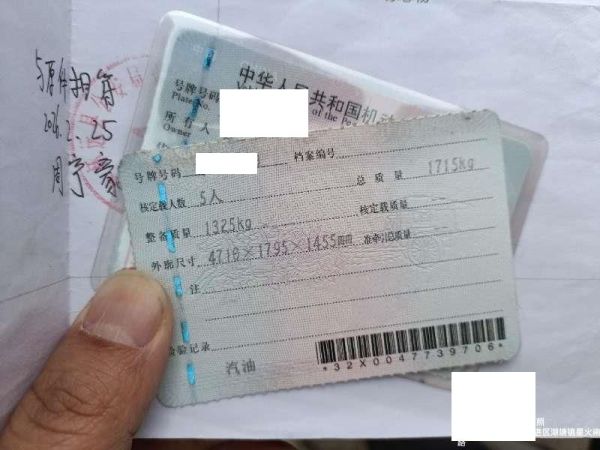 与原件相符
2026.2.25
中华人民共和国机动
号牌号码
Plate No.
of the Peo
所有人
Owner
号牌号码
档案编号
核定载人数 5人
总质量 1715kg
整备质量 1325kg
核定载质量
外廓尺寸 4718×1795×1455mm
准牵引总质量
注
检验记录
汽油
*32X0047739706*
照
进区湖塘镇星火
路